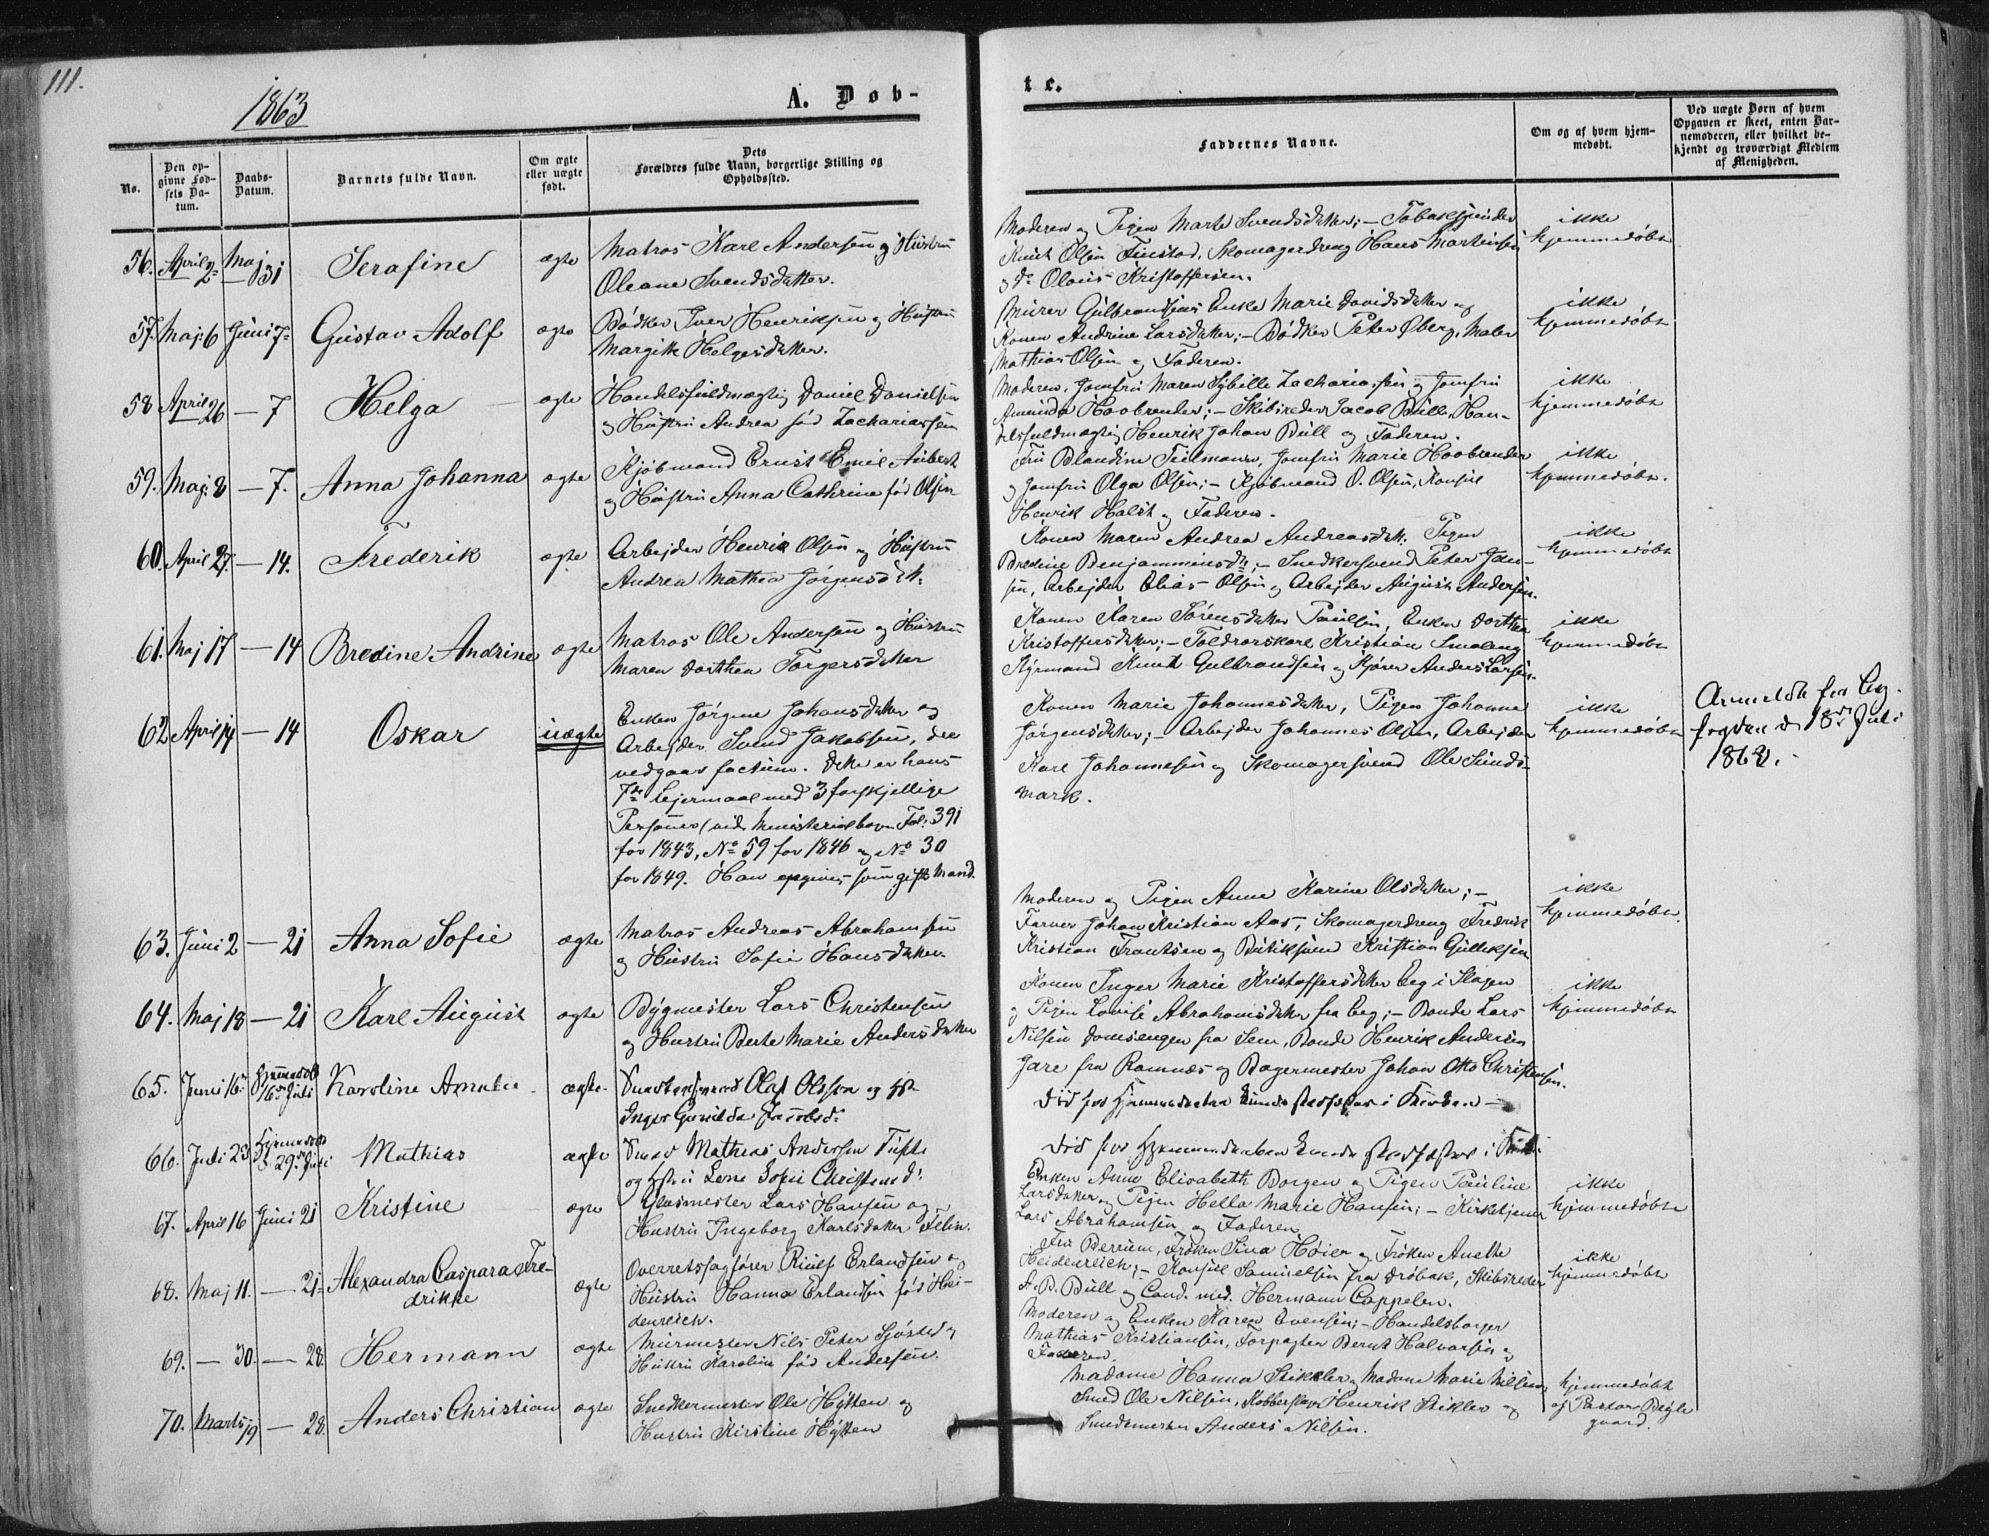 111.
1863
A. Døb-
te.
No.
Den op-
givne Fød-
sels Da-
tum.
Daabs-
Datum.
Barnets fulde Navn.
Om ægte
eller uægte
født.
Dets
Forældres fulde Navn, borgerlige Stilling og
Opholdssted.
Faddernes Navne.
Om og af hvem hjem-
medøbt.
Ved uægte Børn af hvem
Opgaven er skeet, enten Bar-
nemoderen, eller hvilket be-
kjendt og troværdigt Medlem
af Menigheden.
56. April 2 Maj 31 Serafine ægte
Matros Karl Andersen og Hustru
Oleane Svendsdatter.
Moderen og Pigen Marte Svendsdatter; - Tobakspinder
Knut Olsen Finstad, Skomagerdreng Hans Martinsen
og do Olaus Kristoffersen.
ikke
hjemmedøbt
57. Maj 6 Juni 7 Gustav Adolf ægte
Bødker Iver Henriksen og Hustru
Margitte Helgesdatter.
Murer Gulbransens Enke Marie Davidsdatter og
Konen Andrine Larsdatter; - Bødker Peter Øberg, Maler
Mathias Olsen og Faderen.
ikke
hjemmedøbt
58 April 26 - 7 Helga ægte
Handelsfuldmægtig Daniel Danielsen
og Hustru Andrea fød Zachariassen
Moderen, Jomfru Maren Sybille Zachariassen og Jomfru
Amunda Hoobrender; - Skibsreder Jacob Bull, Han-
delsfuldmægtig Henrik Johan Bull og Faderen.
ikke
hjemmedøbt
59. Maj 8 - 7. Anna Johanna ægte
Kjøbmand Ernst Emil Aubert
og Hustru Anna Cathrine fød Olsen
Fru Blandine Teilmann, Jomfru Marie Hoobrender
og Jomfru Olga Olsen; - Kjøbmand O. Olsen, Konsul
Henrik Halst og Faderen.
ikke
hjemmedøbt.
60. April 27. - 14. Frederik ægte
Arbejder Henrik Olsen og Hustru
Andrea Mathea Jørgensdtr.
Konen Maren Andrea Andreasdtr. Pigen
Bredine Benjaminsdtr; - Snedkersvend Peter Jan-
sen, Arbejder Elias Olsen og Arbejder August Andersen.
ikke
hjemmedøbt
61. Maj 17 - 14 Bredine Andrine ægte
Matros Ole Andersen og Hustru
Maren Dorthea Torgersdatter
Konen Karen Sørensdatter Paulsen, Enken Dorthea
Kristoffersdatter; - Toldrorskarl Kristian Smaleng
Styrmand Knut Gulbrandsen og Kjører Anders Larsen.
ikke
hjemmedøbt
62 April 14 - 14 Oskar uægte
Enken Jørgine Johansdatter og
Arbejder Svend Jakobsen, der
vedgaar factum. Dette er hans
7de Lejermaal med 3 forskjellige
Personer (vide Ministerialbogen Fol. 391
for 1843, No 59 for 1846 og No 30
for 1849. Han opgives som gift Mand.
Konen Marie Johannesdatter, Pigen Johanne
Jørgensdatter; - Arbejder Johannes Olsen, Arbejder
Karl Johannesen og Skomagersvend Ole Sunds-
mark.
ikke
hjemmedøbt
Anmeldt fra By-
fogden d 18de Juli
1863.
63. Juni 2 - 21 Anna Sofie ægte
Matros Andreas Abrahamsen
og Hustru Sofie Hansdatter.
Moderen og Pigen Anne Karine Olsdatter; -
Farver Johan Kristian Aas, Skomagerdreng Fredrik
Kristian Frantsen og Butiksvend Kristian Gulliksen
ikke
hjemmedøbt.
64. Maj 18 - 21 Karl August ægte
Bygmester Lars Christensen
og Hustru Berte Marie Andersdatter
Konen Inger Marie Kristoffersdatter Eeg i Slagen
og Pigen Lovise Abrahamsdatter fra Eeg; - Bonde Lars
Nilsen Domsengen fra Sem, Bonde Henrik Andersen
Jare fra Ramnæs og Bagermester Johan Otto Christensen.
ikke
hjemmedøbt
65. Juni 16 Hjemmedøbt 16de Juli Karoline Amalie ægte
Olaf Olsson og Hst
Inger Gunilda Jacobsd.
Død før Hjemmedaaben kunde stadfæstes i Kirken -
66. Juli 23 Hjemmedøbt 29de Juli Mathias ægte
Mathias Andersen Tufte
og Hstru Lene Sofie Christensd:
Død før Hjemmedaaben kunde stadfæstes i Kirken.
67. April 16 Juni 21 Kristine ægte
Glasmester Lars Hansen og
Hustru Ingeborg Karlsdatter Felin.
Enken Anne Elisabeth Borgen og Pigen Pauline
Larsdatter og Pigen Hella Marie Hansen; - Kirketjener
Lars Abrahamsen og Faderen
ikke
hjemmedøbt
68. Maj 11. - 21 Alexandra Caspara Fre-
drikke ægte
Overretssagfører Riulf Erlandsen og
Hustru Hanna Erlandsen fød Hei-
denreich.
Fru Berrum, Frøken Sina Høier og Frøken Anette
Heidenreich; - Konsul Samuelsen fra Drøbak, Skibsreder
A. B. Bull og Cand. med. Hermann Cappelen.
ikke
hjemmedøbt
69. - 30. - 28. Hermann ægte
Murmester Nils Peter Sjøsted og
Hustru Karoline fød Andersen.
Moderen og Enken Karen Evensen; - Handelsborger
Mathias Kristiansen, Forpagter Bernt Halvorsen og
Faderen.
70. Marts 19 - 28. Anders Christian ægte
Snedkermester Ole Hytten og
Hustru Kirstine Hytten
Madame Hanna Stikler, Madame Marie Nilsen,
Smed Ole Nilsen, Kobberslager Henrik Stikler og
Smedemester Anders Nilsen.
hjemmedøbt
af Pastor Bugle
gaard.